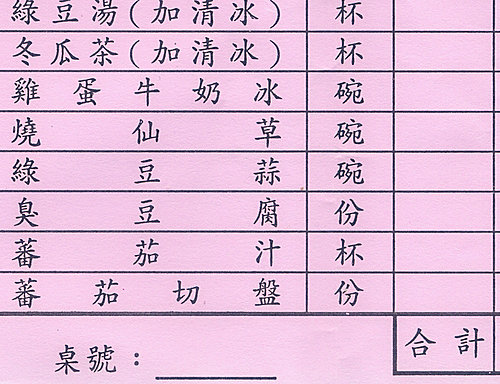 綠豆湯(加清冰) 杯
冬瓜茶(加清冰) 杯
雞蛋牛奶冰 碗
燒仙草 碗
綠豆蒜 碗
臭豆腐 份
蕃茄汁 杯
蕃茄切盤 份
合計
桌號：